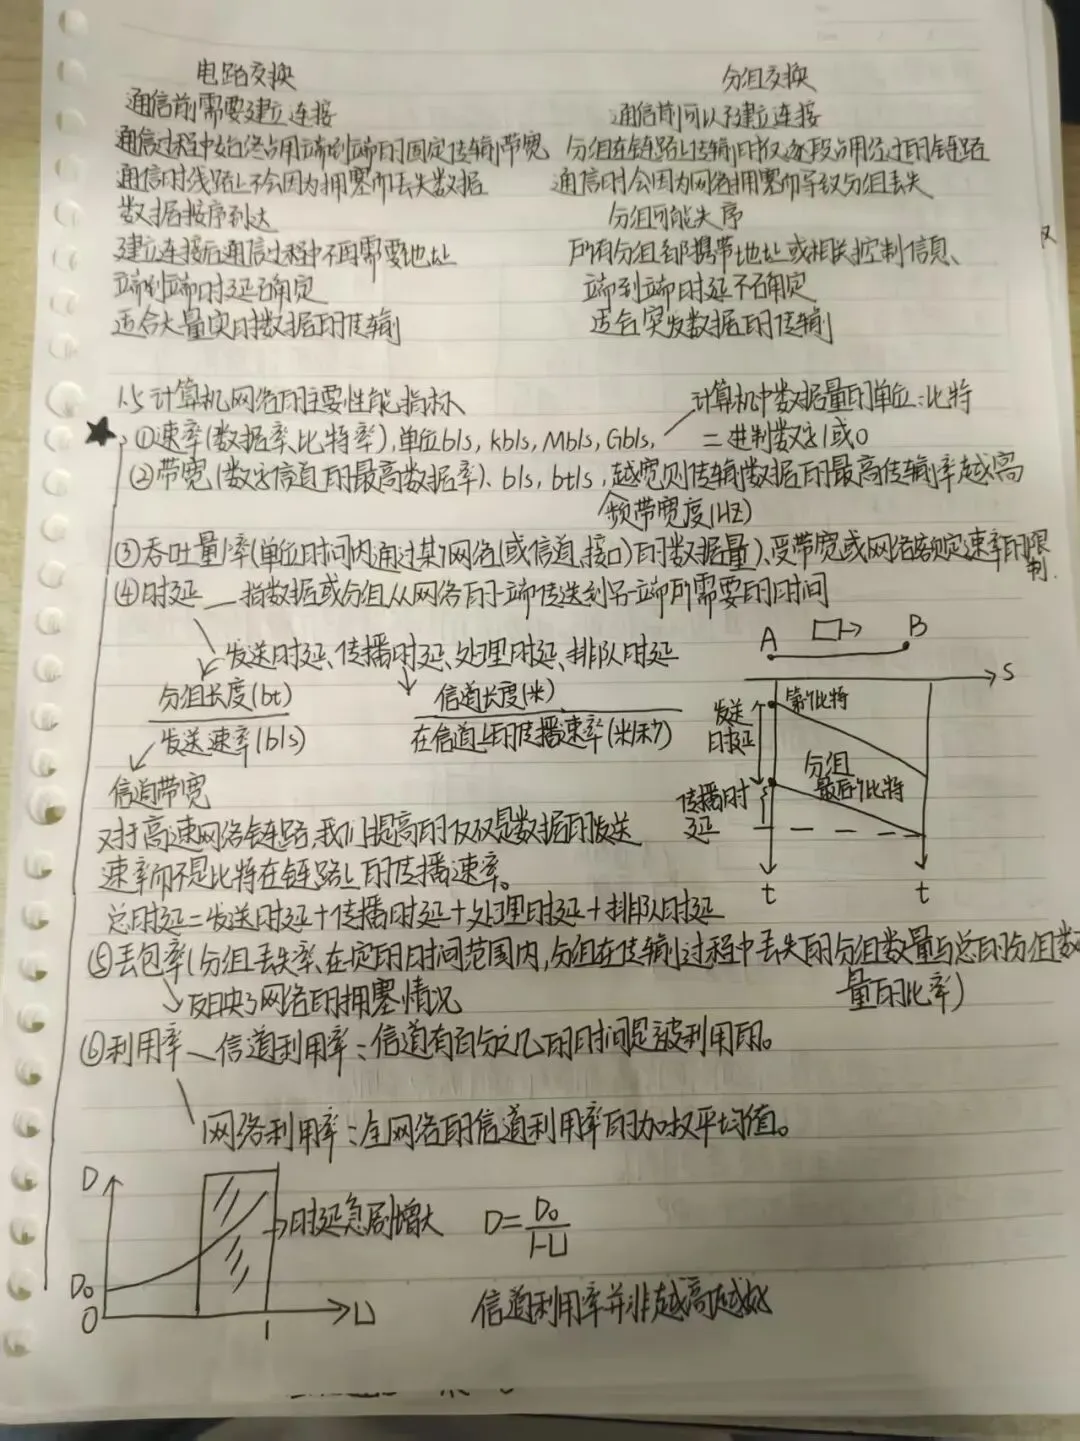 电路交换
通信前需要建立连接
通信过程中始终占用端到端的固定传输带宽
通信时线路上不会因为拥塞而丢失数据
数据按序到达
建立连接后通信过程中不再需要地址
端到端时延确定
适合大量实时数据的传输
分组交换
通信前可以不建立连接
分组在链路上传输时仅逐段占用经过的链路
通信时会因为网络拥塞而导致分组丢失
分组可能失序
所有分组都携带地址或相关控制信息、
端到端时延不确定
适合突发数据的传输
1.5 计算机网络的主要性能指标
计算机中数据量的单位:比特
①速率(数据率、比特率),单位b/s, kb/s, Mb/s, Gb/s,
二进制数字1或0
②带宽(数字信道的最高数据率)、b/s, bt/s, 越宽则传输数据的最高传输率越高
频带宽度(HZ)
③吞吐量/率(单位时间内通过某个网络(或信道,接口)的数据量)、受带宽或网络额定速率的限制.
④时延 — 指数据或分组从网络的一端传送到另一端所需要的时间
发送时延、传播时延、处理时延、排队时延
分组长度(bt)
发送速率(b/s)
信道带宽
信道长度(米)
在信道上的传播速率(米/秒)
A B
S
发送时延
第1个比特
分组
最后1个比特
传播时延
t t
对于高速网络链路,我们提高的仅仅是数据的发送
速率而不是比特在链路上的传播速率。
总时延=发送时延+传播时延+处理时延+排队时延
⑤丢包率(分组丢失率、在一定的时间范围内,分组在传输过程中丢失的分组数量与总的分组数
量的比率)
反映了网络的拥塞情况
⑥利用率 — 信道利用率:信道有百分之几的时间是被利用的。
网络利用率:全网络的信道利用率的加权平均值。
D
D0
0
1
U
时延急剧增大
D=D0/1-U
信道利用率并非越高越好